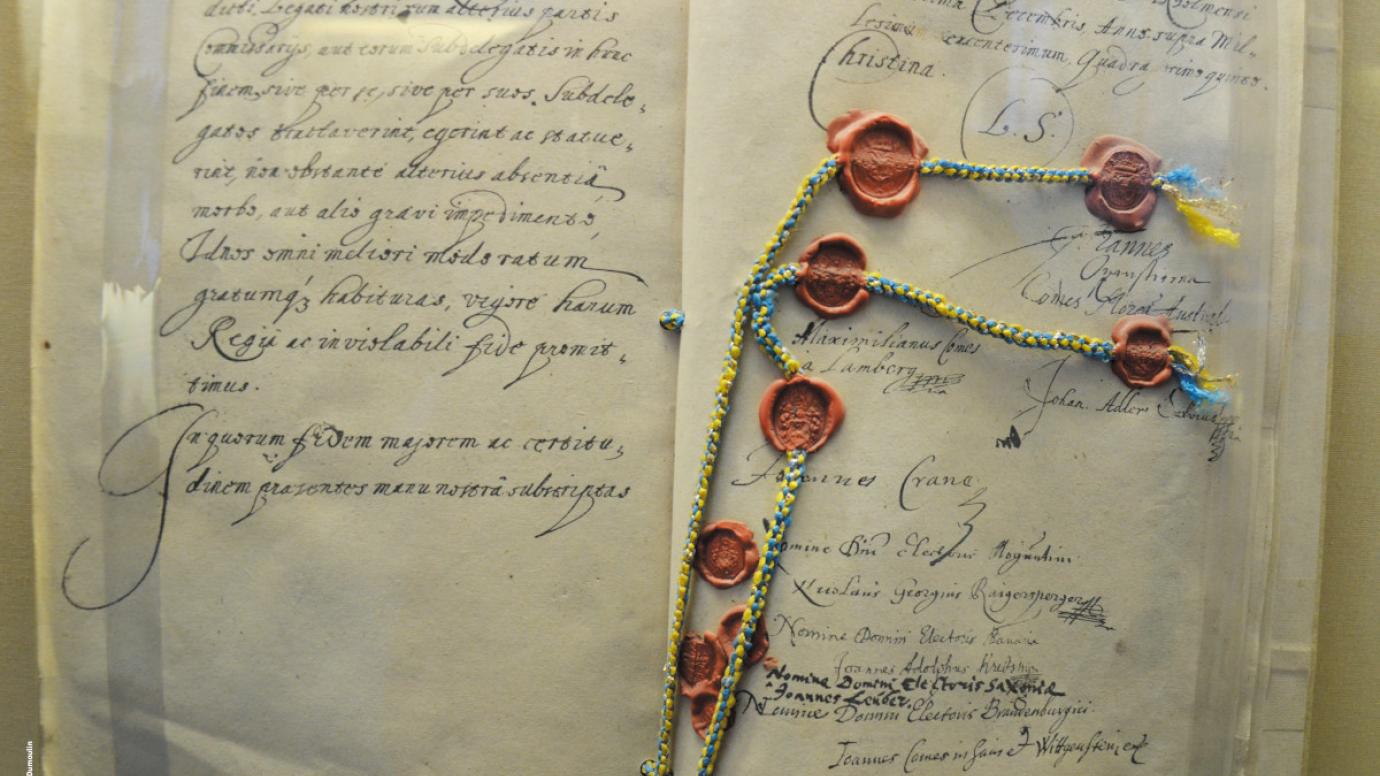 dicti, Legati nostri cum alterius partis
Commissarijs, aut eorum Subdelegatis in hunc
finem, sive per se, sive per suos Subdele,
gatos tractaverint, egerint ac statue,
rint, non obstante alterius absentiâ
morbo, aut alio gravi impedimento,
Id nos omni meliori modo ratum
gratumq́3 habituras, vigore harum
Regiè ac inviolabili fide promit,
timus.
In quorum fidem majorem ac certitu,
dinem præsentes manu nostrâ subscriptas
Decembris, Anno supra Mil,
lesimum Quadra primo quinto.
Christina.
L. S.
Joannes
Oxenstierna
Comes Moreæ Austral
Maximilianus Comes
à Lamberg
Johan. Adler Salvius
Joannes Crane
Nomine Dni Electoris Moguntini
Nicolaus Georgius Raigersperger
Nomine Domini Electoris Bavariæ
Joannes Adolphus Krebs
Nomine Domini Electoris Saxoniæ
Joannes Leuber.
Nomine Domini Electoris Brandenburgici
Joannes Comes in Sain et Wittgenstein
Dumoulin